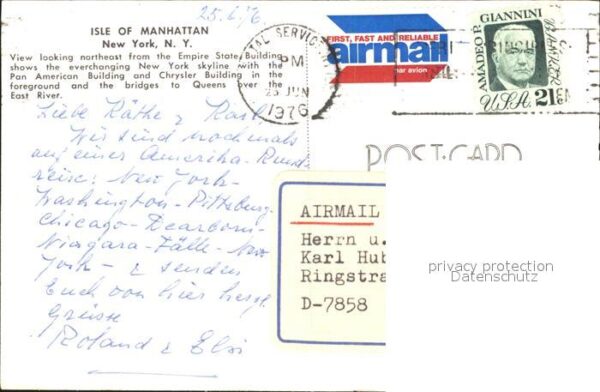 25.6.76
ISLE OF MANHATTAN
New York, N. Y.
View looking northeast from the Empire State Building
shows the everchanging New York skyline with the
Pan American Building and Chrysler Building in the
foreground and the bridges to Queens over the
East River.
POSTAL SERVICE
PM
25 JUN
1976
FIRST, FAST AND RELIABLE
airmail
par avion
AMADEO P. GIANNINI
BANKER
U.S.A. 21c
POST CARD
Liebe Käthe & Karl
Wir sind nochmals
auf einer Amerika-Rund
reise: New York-
Washington-Pittsburg-
Chicago-Dearborn-
Niagara-Fälle-New
York- & senden
Euch von hier herzl.
Grüsse
Roland & Elsi
AIRMAIL
Herrn u.
Karl Hub
Ringstra
D-7858
privacy protection
Datenschutz